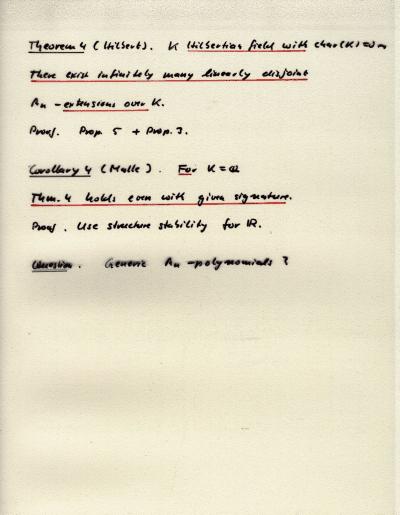 Theorem 4 (Hilbert). K Hilbertian field with char(K)=0.
There exist infinitely many linearly disjoint
An - extensions over K.
Proof. Prop. 5 + Prop. 3.
Corollary 4 (Malle). For K = Q
Thm. 4 holds even with given signature.
Proof. Use structure stability for R.
Question. Generic An - polynomials ?